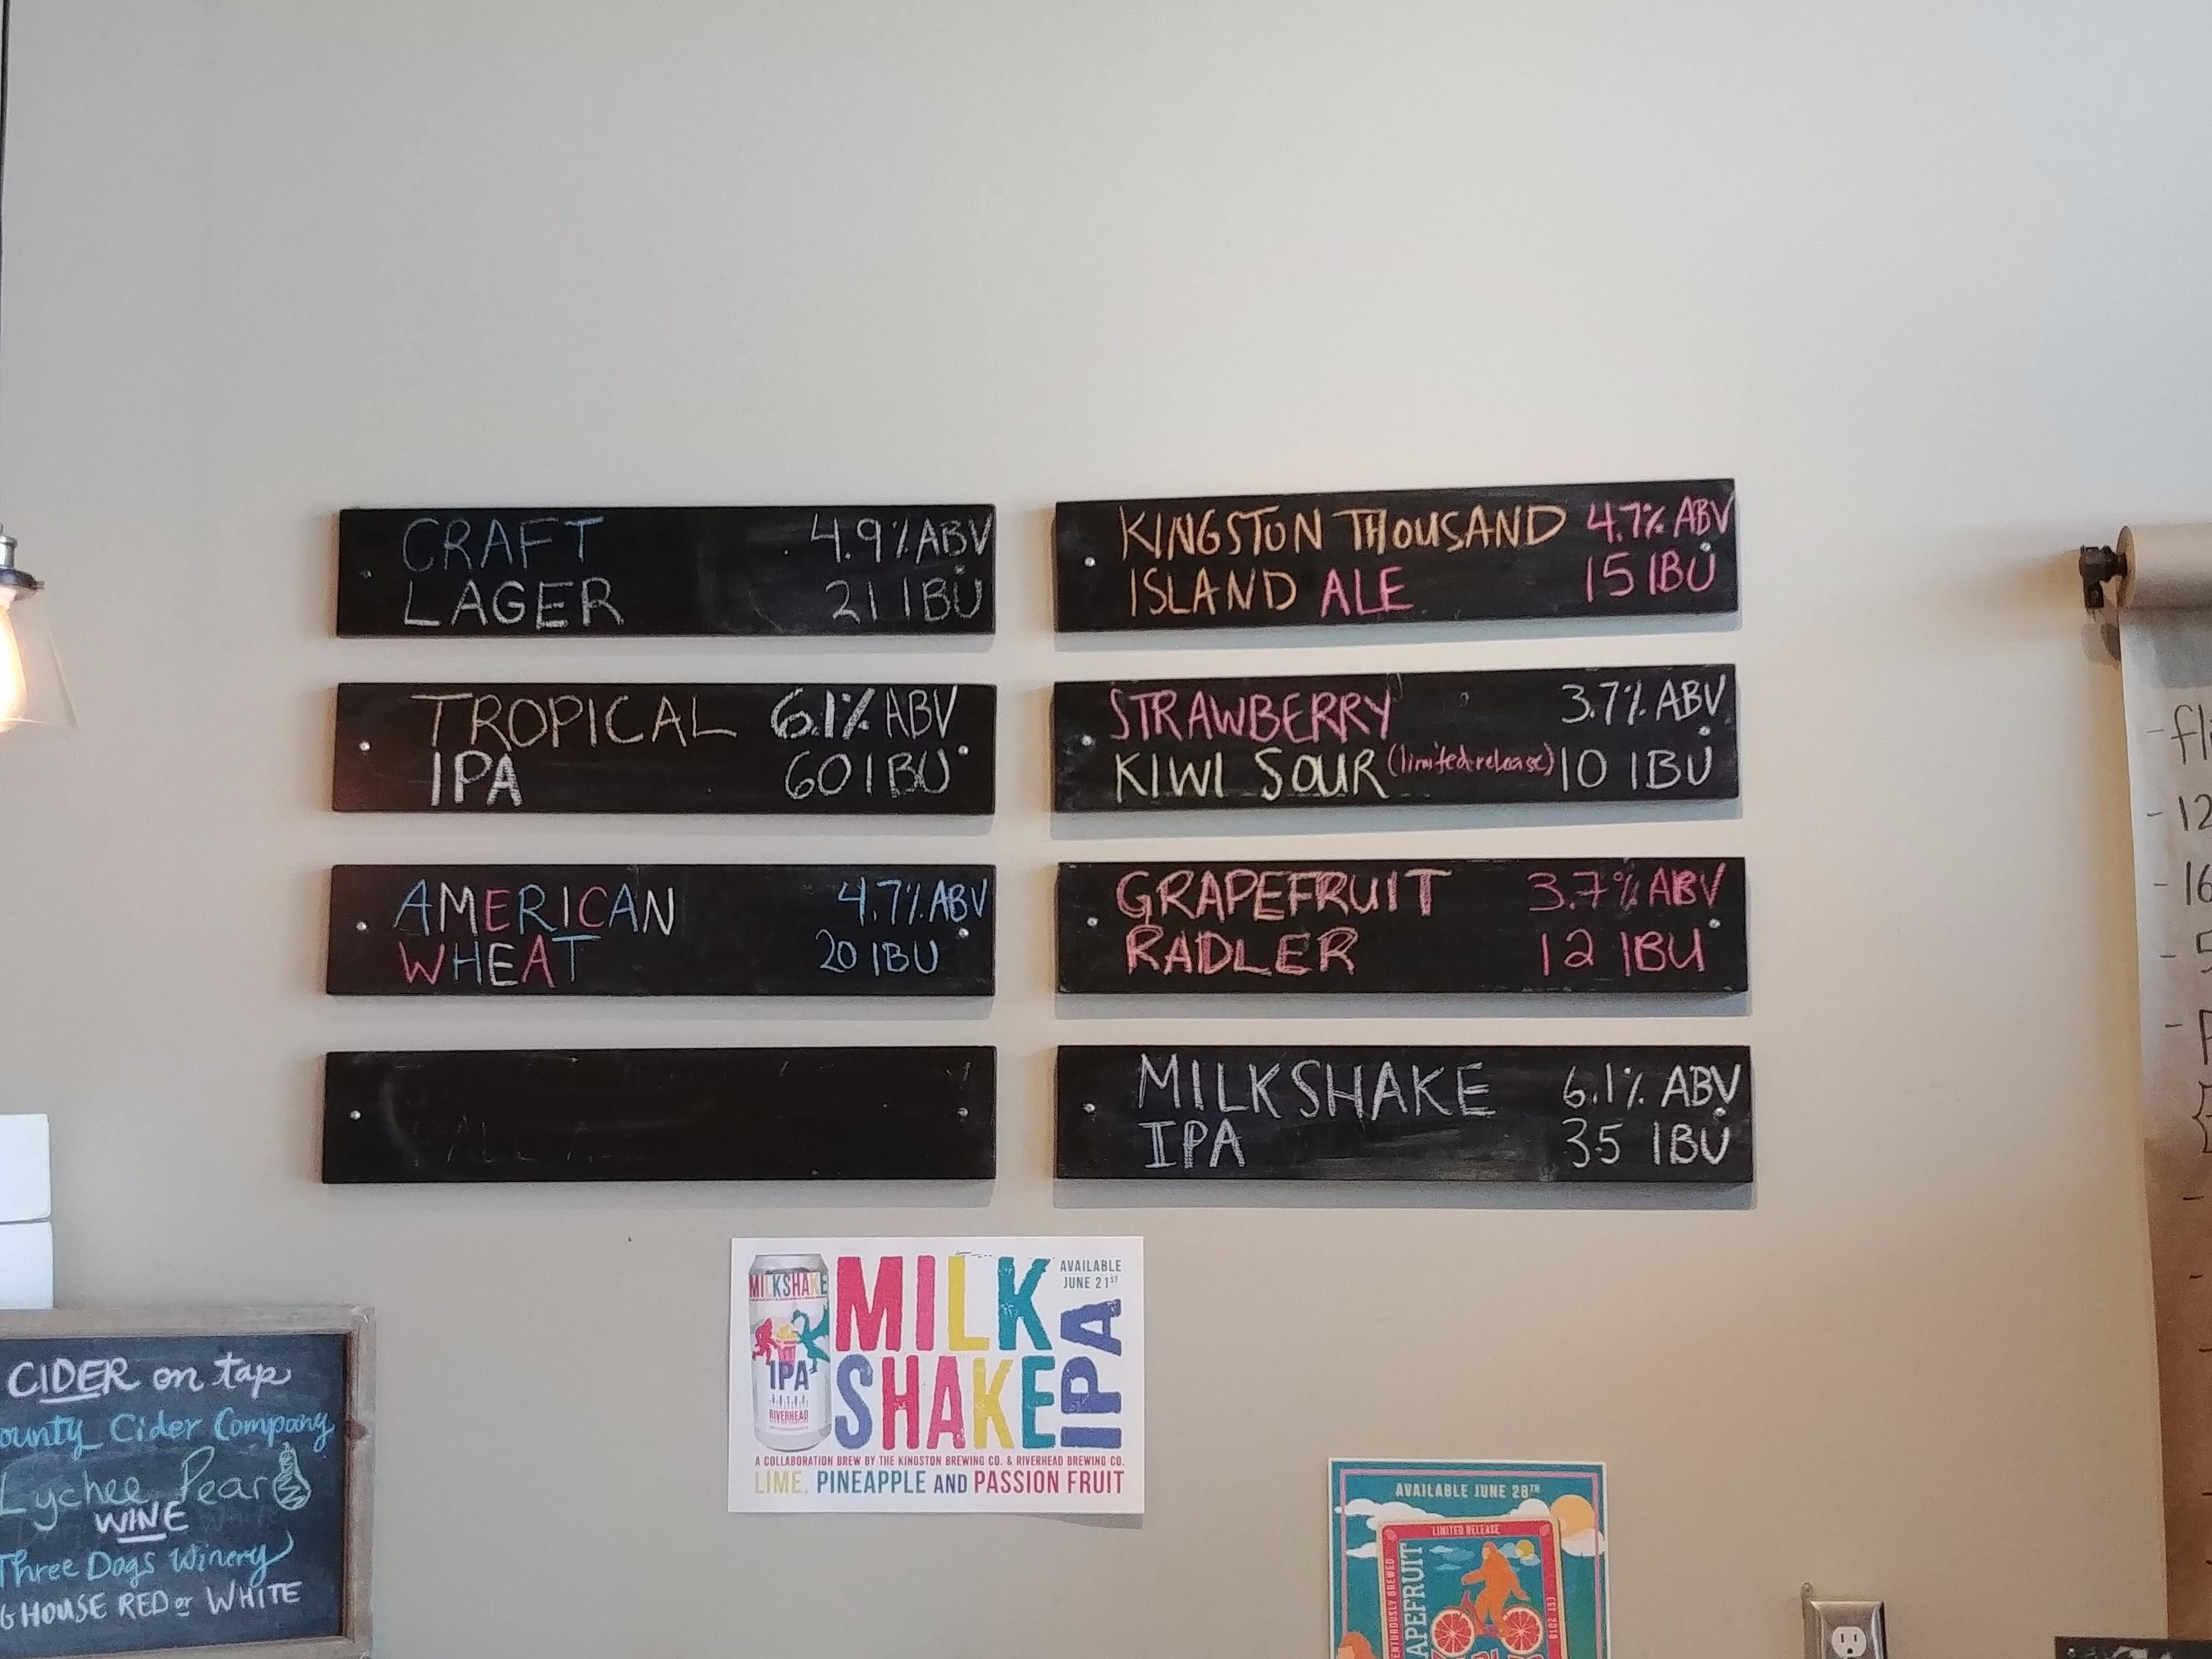 CRAFT 4.9% ABV
LAGER 21 IBU
TROPICAL 6.1% ABV
IPA 60 IBU
AMERICAN 4.7% ABV
WHEAT 20 IBU
KINGSTON THOUSAND 4.7% ABV
ISLAND ALE 15 IBU
STRAWBERRY 3.7% ABV
KIWI SOUR (limited release) 10 IBU
GRAPEFRUIT 3.7% ABV
RADLER 12 IBU
MILKSHAKE 6.1% ABV
IPA 35 IBU
MILKSHAKE
IPA
RIVERHEAD
MILK
SHAKE
IPA
AVAILABLE
JUNE 21ST
A COLLABORATION BREW BY THE KINGSTON BREWING CO. & RIVERHEAD BREWING CO.
LIME, PINEAPPLE AND PASSION FRUIT
CIDER on tap
ounty Cider Company
Lychee Pear
WINE
Three Dogs Winery
HOUSE RED or WHITE
AVAILABLE JUNE 28TH
LIMITED RELEASE
ENTUROUSLY BREWED
APEFRUIT
EST. 2016
- fl
- 12
- 16
- 5